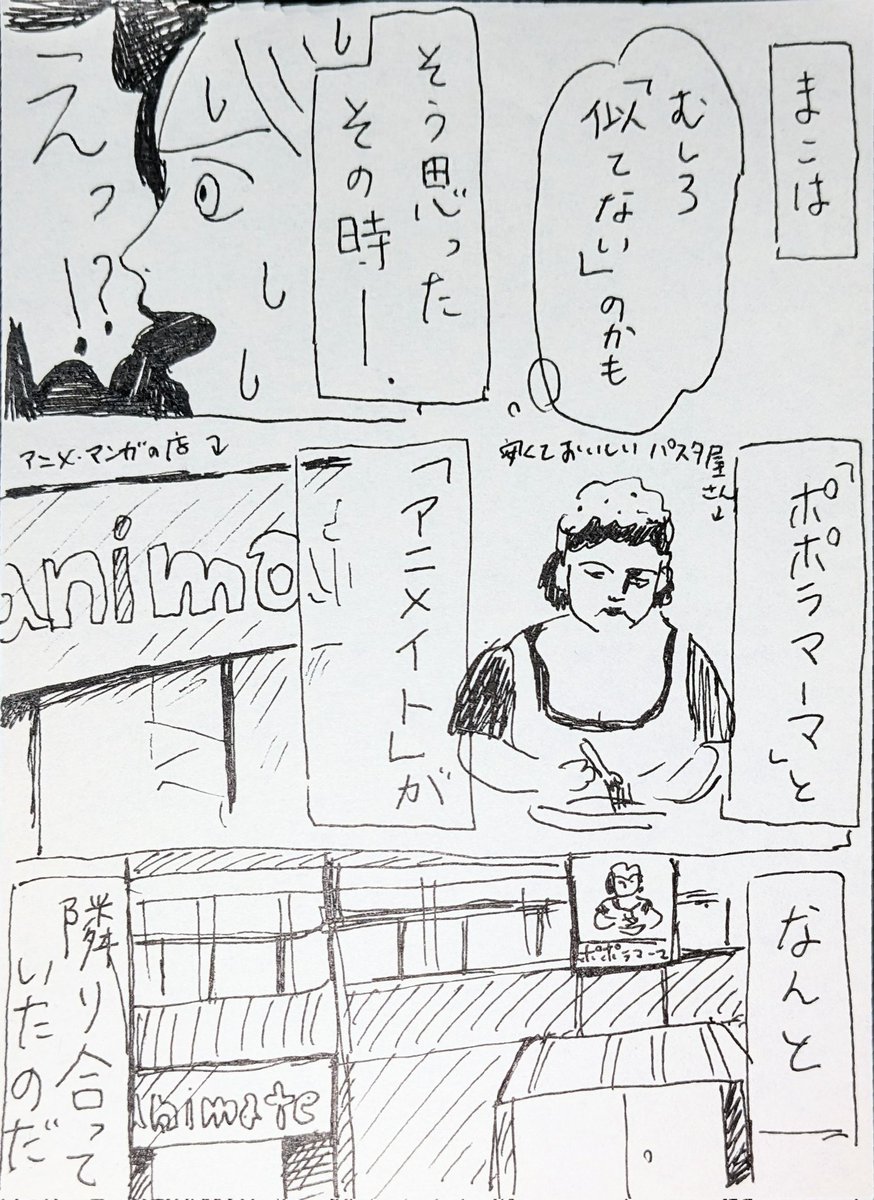 まこは
むしろ
「似てない」のかも
。
そう思った
その時―
えっ!?
「ポポラマーマ」と
安くておいしいパスタ屋
さん↓
「アニメイト」が
アニメ・マンガの店↓
anima
なんと
ポポラマーマ
animate
隣り合って
いたのだ